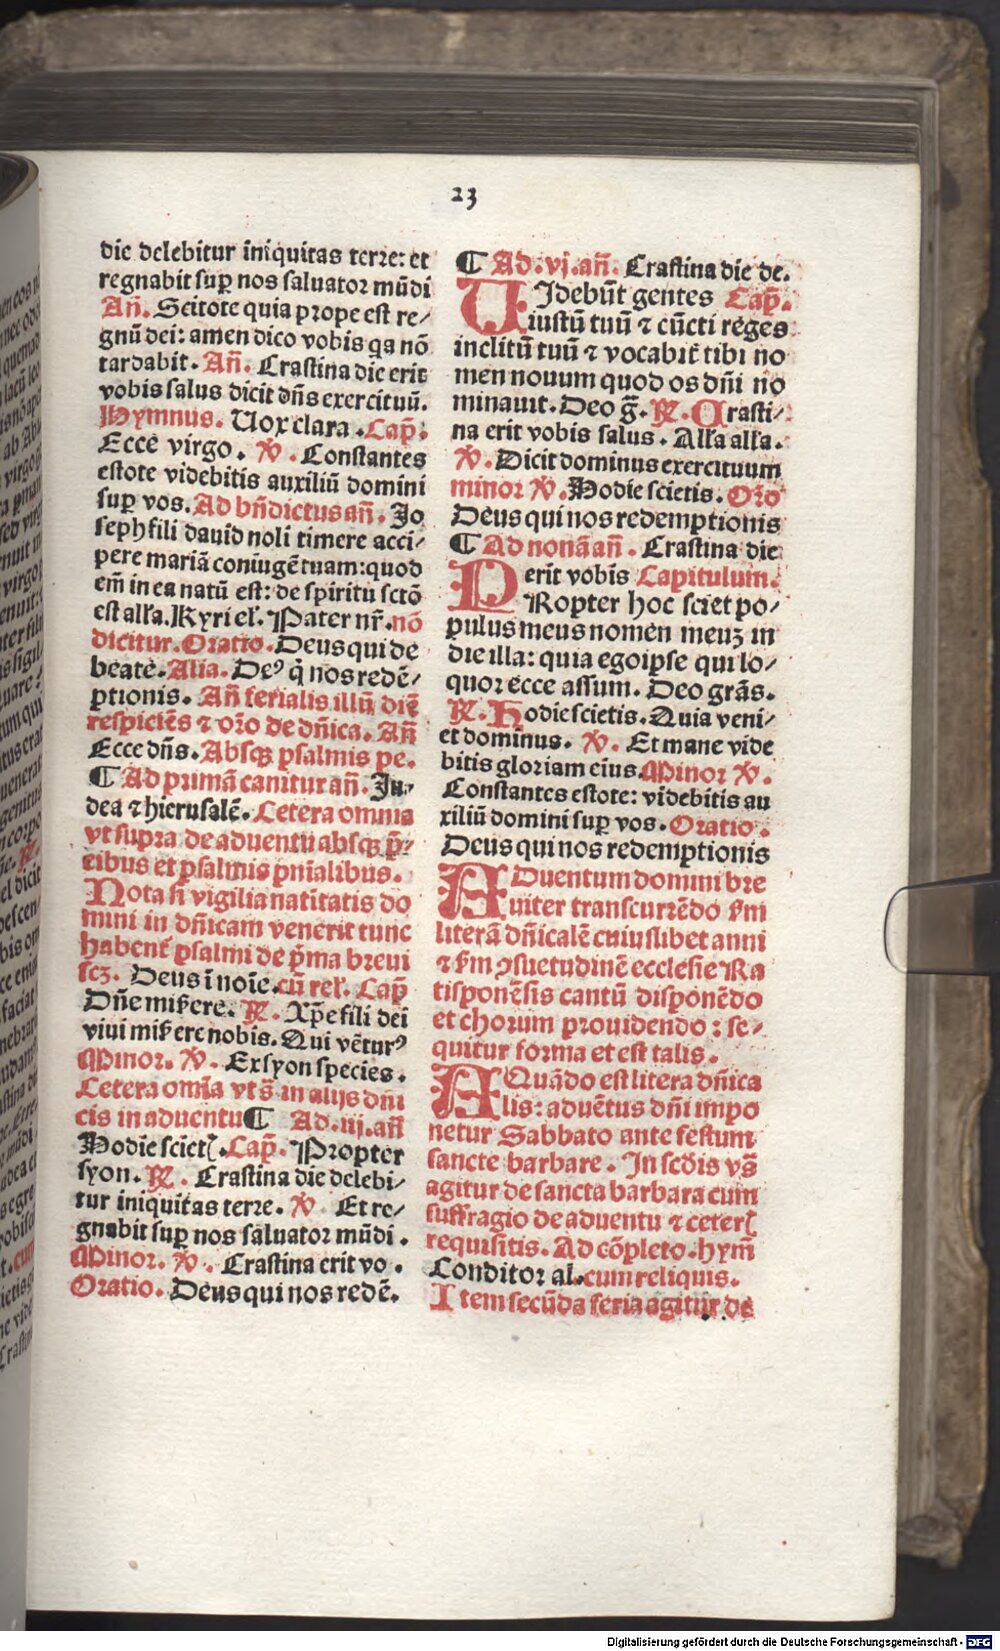 23
die delebitur iniquitas terre: et
regnabit suꝑ nos saluator mūdi
An̄. Scitote quia prope est re⸗
gnū dei: amen dico vobis qa nō
tardabit. An̄. Crastina die erit
vobis salus dicit dn̄s exercituū.
Hymnus. Uox clara. Cap̄.
Ecce virgo. ℣. Constantes
estote videbitis auxiliū domini
suꝑ vos. Ad bn̄dictus an̄. Jo
seph fili dauid noli timere acci⸗
pere mariā coniugē tuam: quod
em̄ in ea natū est: de spiritu sctō
est alła. Kyri eł. Pater nr̄. nō
dicitur. Oratio. Deus qui de
beate. Alia. Deꝰ q̄ nos redē⸗
ptionis. An̄ ferialis illū diē
respiciēs ⁊ orō de dn̄ica. An̄
Ecce dn̄s. Absqꝫ psalmis pe.
¶ Ad primā canitur an̄. Ju⸗
dea ⁊ hierusalē. Cetera omnia
vt supra de aduentu absqꝫ p̄⸗
cibus et psalmis pn̄ialibus.
Nota si vigilia natitatis do
mini in dn̄icam venerit tunc
habent̄ psalmi de p̄ma breui
scꝫ. Deus ī noīe. cū reł. Cap̄
Dn̄e miẜere. ℟. Xp̄e fili dei
viui miẜere nobis. Qui vēturꝰ
Minor. ℣. Ex syon species.
Cetera omīa vt s̄ in alijs dn̄i
cis in aduentu ¶ Ad. iij. an̄
Hodie scietꝭ. Cap̄. Propter
syon. ℟. Crastina die delebi⸗
tur iniquitas terre. ℣ Et re⸗
gnabit suꝑ nos saluator mūdi.
Minor. ℣. Crastina erit vo.
Oratio. Deus qui nos redē.
¶ Ad. vj. an̄. Crastina die de.
UJdebūt gentes Cap̄.
iustū tuū ⁊ cūcti reges
inclitū tuū ⁊ vocabit̄ tibi no
men nouum quod os dn̄i no
minauit. Deo g̅. ℟. Crasti⸗
na erit vobis salus. Alła alła.
℣. Dicit dominus exercituum
minor ℣. Hodie scietis. Orō
Deus qui nos redemptionis
¶ Ad nonā an̄. Crastina die
erit vobis Capitulum.
PRopter hoc sciet po⸗
pulus meus nomen meuꝫ in
die illa: quia ego ipse qui lo⸗
quor ecce assum. Deo grās.
℟. Hodie scietis. Quia veni⸗
et dominus. ℣. Et mane vide
bitis gloriam eius. Minor ℣.
Constantes estote: videbitis au
xiliū domini suꝑ vos. Oratio.
Deus qui nos redemptionis
ADuentum domini bre
uiter transcurrēdo ẜm
literā dn̄icalē cuiuslibet anni
⁊ ẜm ꝯsuetudinē ecclesie Ra
tisponēsis cantū disponēdo
et chorum prouidendo: se⸗
quitur forma et est talis.
AQuādo est litera dn̄ica
lis: aduētus dn̄i impo
netur Sabbato ante festum
sancte barbare. In scd̄is vs̄
agitur de sancta barbara cum
suffragio de aduentu ⁊ ceterꝭ
requisitis. Ad cōpleto. hym̄
Conditor al. cum reliquis.
Item secūda feria agitur de
Digitalisierung gefördert durch die Deutsche Forschungsgemeinschaft - DFG